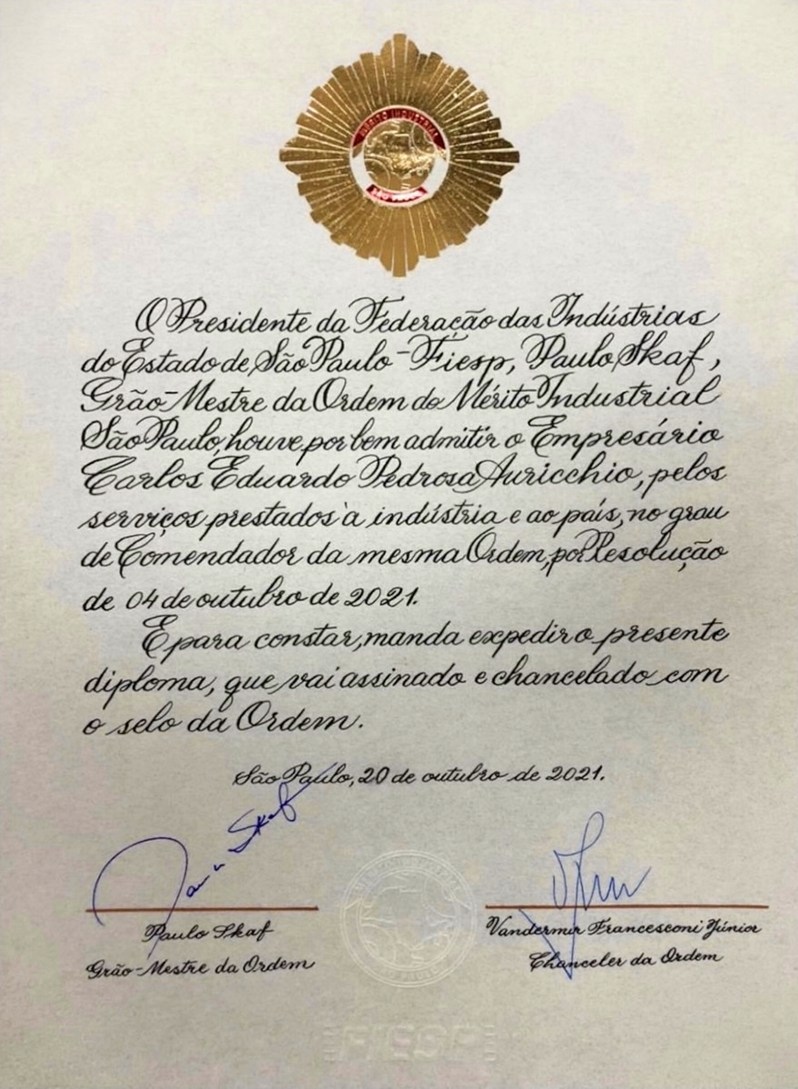 MÉRITO INDUSTRIAL
SÃO PAULO
O Presidente da Federação das Indústrias
do Estado de São Paulo - Fiesp, Paulo Skaf,
Grão-Mestre da Ordem do Mérito Industrial
São Paulo, houve por bem admitir o Empresário
Carlos Eduardo Pedrosa Auricchio, pelos
serviços prestados à indústria e ao país, no grau
de Comendador da mesma Ordem, por Resolução
de 04 de outubro de 2021.
E para constar, manda expedir o presente
diploma, que vai assinado e chancelado com
o selo da Ordem.
São Paulo, 20 de outubro de 2021.
Paulo Skaf
Grão-Mestre da Ordem
Vandermir Francesconi Júnior
Chanceler da Ordem
FIESP